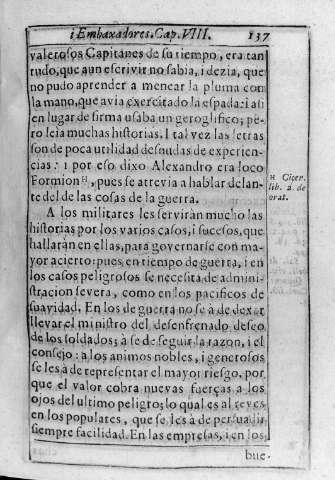 i Embaxadores. Cap. VIII. 137
valerosos Capitanes de su tiempo, era tan
rudo, que aun escrivir no sabia, i dezia, que
no pudo aprender a menear la pluma con
la mano, que avia exercitado la espada: i asi
en lugar de firma usaba un geroglifico; pe-
ro leia muchas historias. I tal vez las letras
son de poca utilidad desnudas de experien-
cias: i por eso dixo Alexandro era loco
Formion H, pues se atrevia a hablar delan-
te del de las cosas de la guerra.
H Cicer.
lib. 2. de
orat.
A los militares les servirán mucho las
historias por los varios casos, i sucesos, que
hallarán en ellas, para governarse con ma-
yor acierto: pues en tiempo de guerra, i en
los casos peligrosos se necesita de admini-
stracion severa, como en los pacificos de
suavidad. En los de guerra no se à de dexar
llevar el ministro del desenfrenado deseo
de los soldados; à se de seguir la razon, i el
consejo: a los animos nobles, i generosos
se les à de representar el mayor riesgo, por
que el valor cobra nuevas fuerças a los
ojos del ultimo peligro; lo qual es al reves
en los populares, que se les à de persuadir
siempre facilidad. En las empresas, i en los
bue-